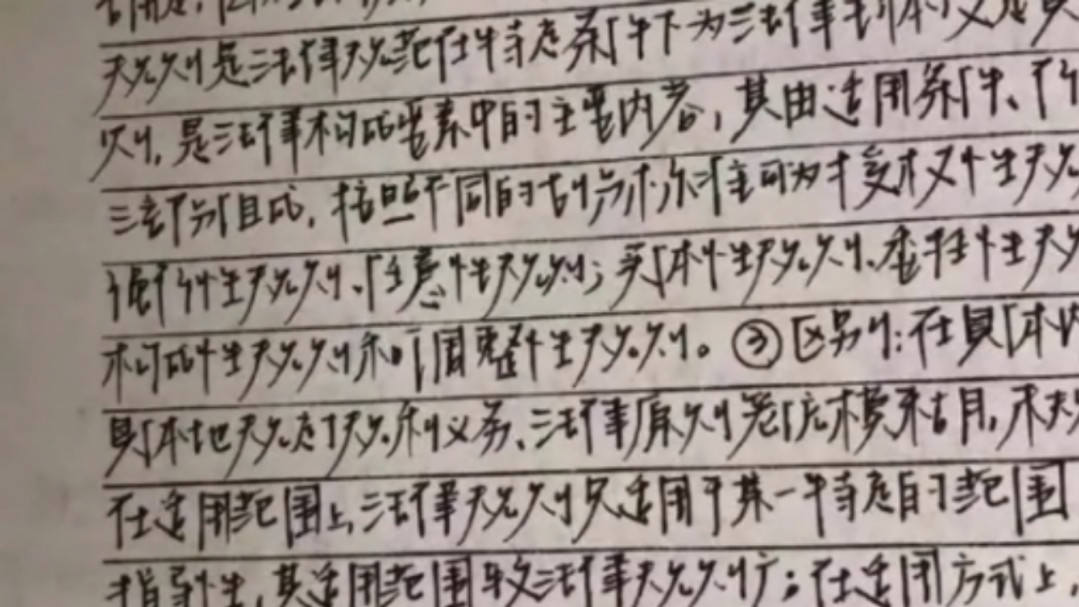 规则是法律规范在特定条件下为法律主体的义务
则,是法律构成要素中的主要内容,其由适用条件、行
三部分组成,按照不同的划分标准可为授权性规
强行性规则、任意性规则;实体性规则、委任性规
构成性规则和调整性规则。③区别:在具体内
具体地规定权利义务、法律原则笼统模糊,未
在适用范围上,法律规则只适用于某一特定的范围
指导性,其适用范围较法律规则广;在适用方式上,